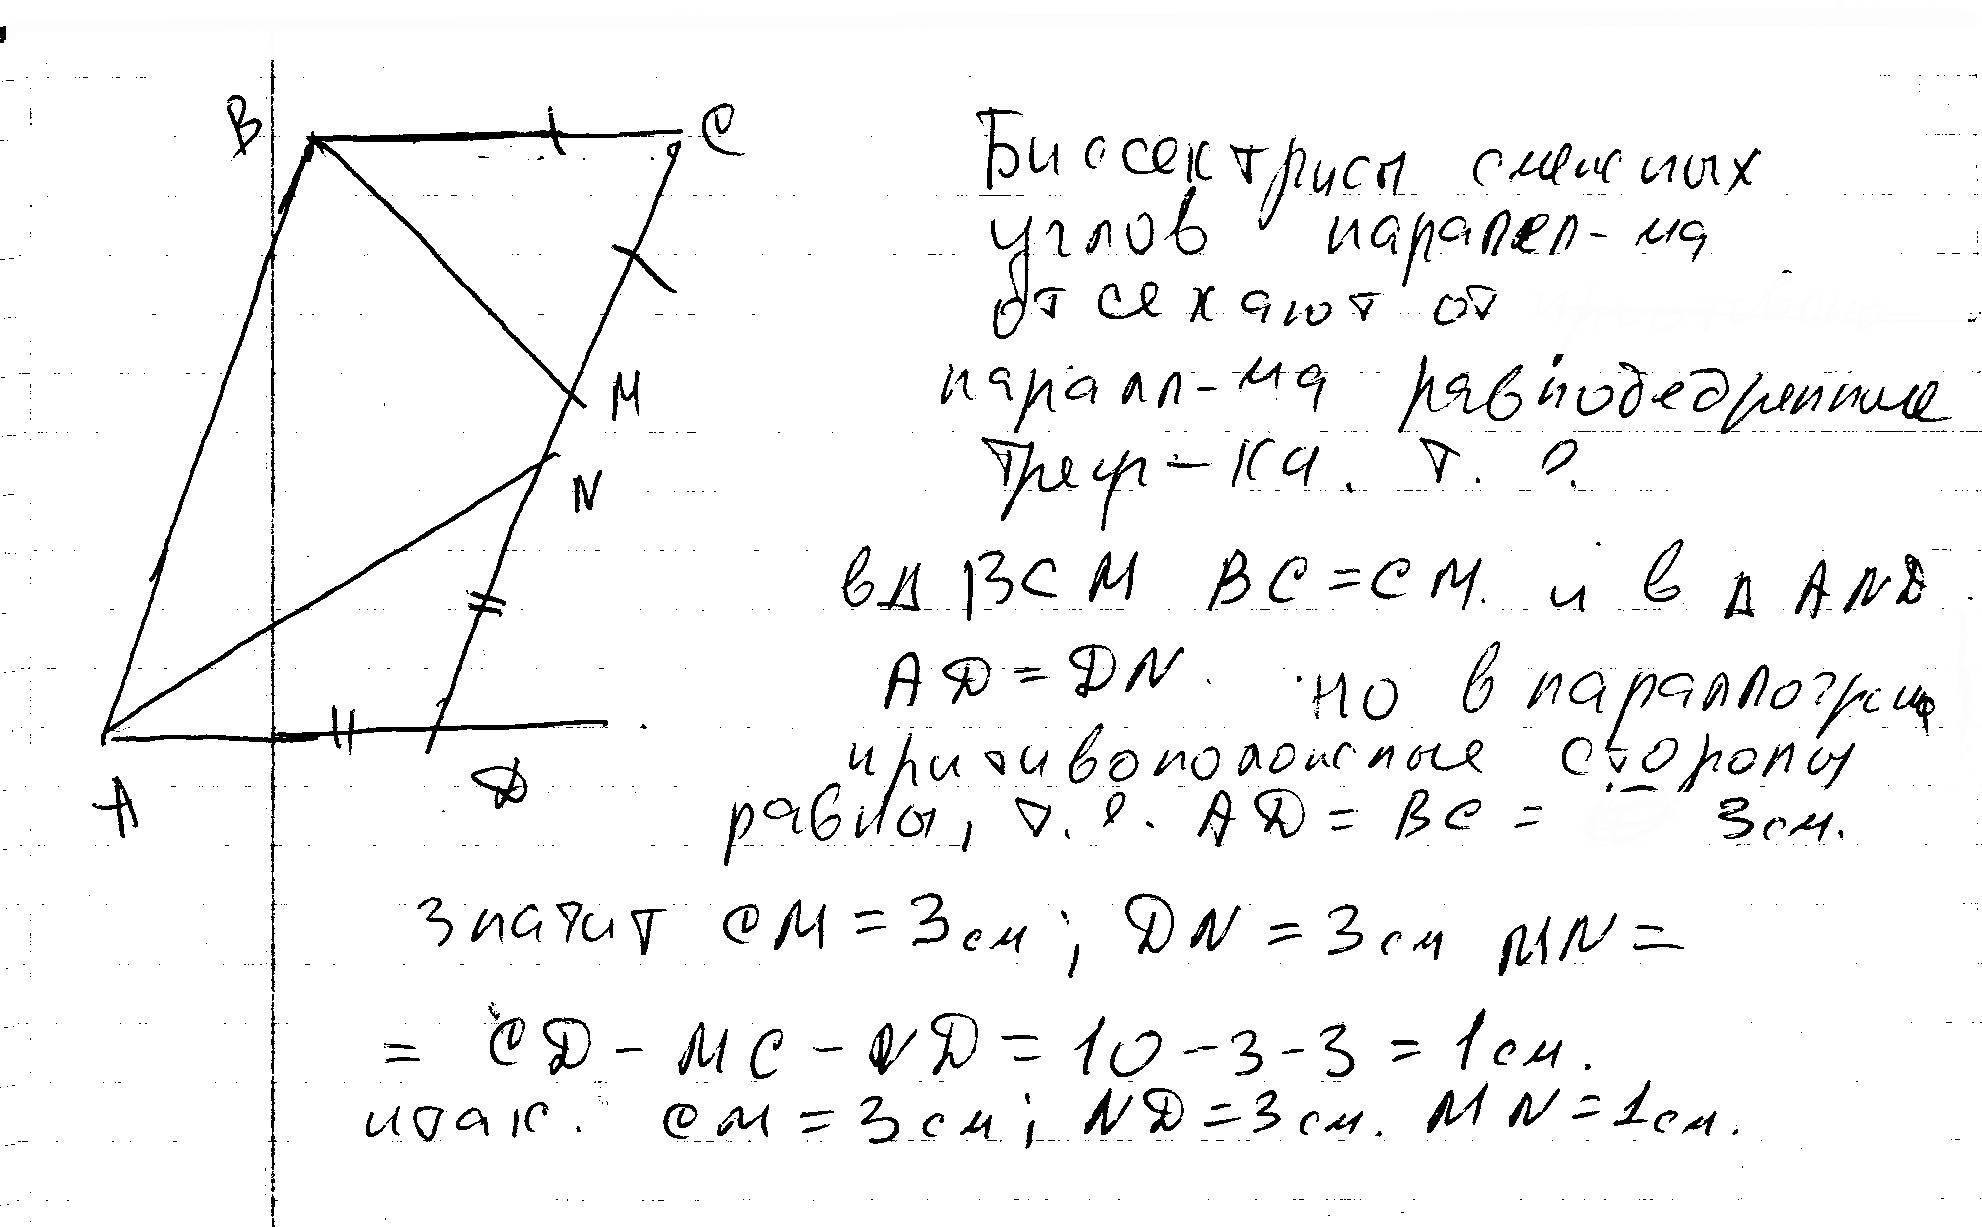 B
C
M
N
A
D
Биссектрисы смежных
углов паралел-ма
отсекают от
паралл-ма равнобедренные
треуг-ка. т. е.
в Δ BCM BC = CM. и в Δ AND
AD = DN. но в параллогрм
притивоположные стороны
равны, т. е. AD = BC = 3см.
Значит CM = 3см; DN = 3см MN =
= CD - MC - ND = 10 - 3 - 3 = 1см.
итак. CM = 3см; ND = 3см. MN = 1см.